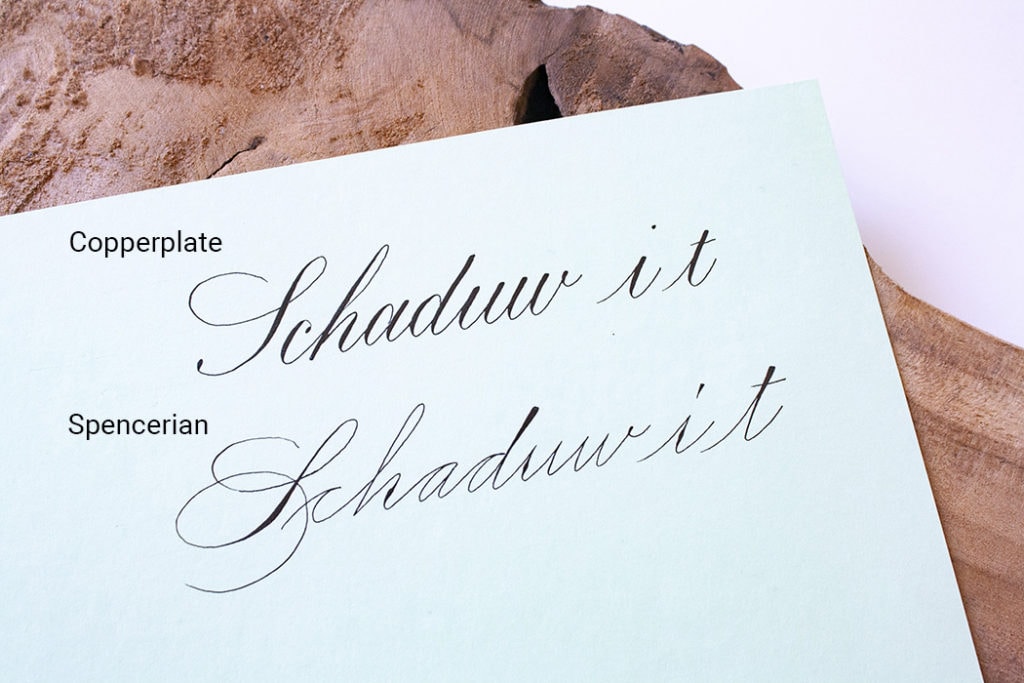 Copperplate
Schaduw i t
Spencerian
Schaduw i t